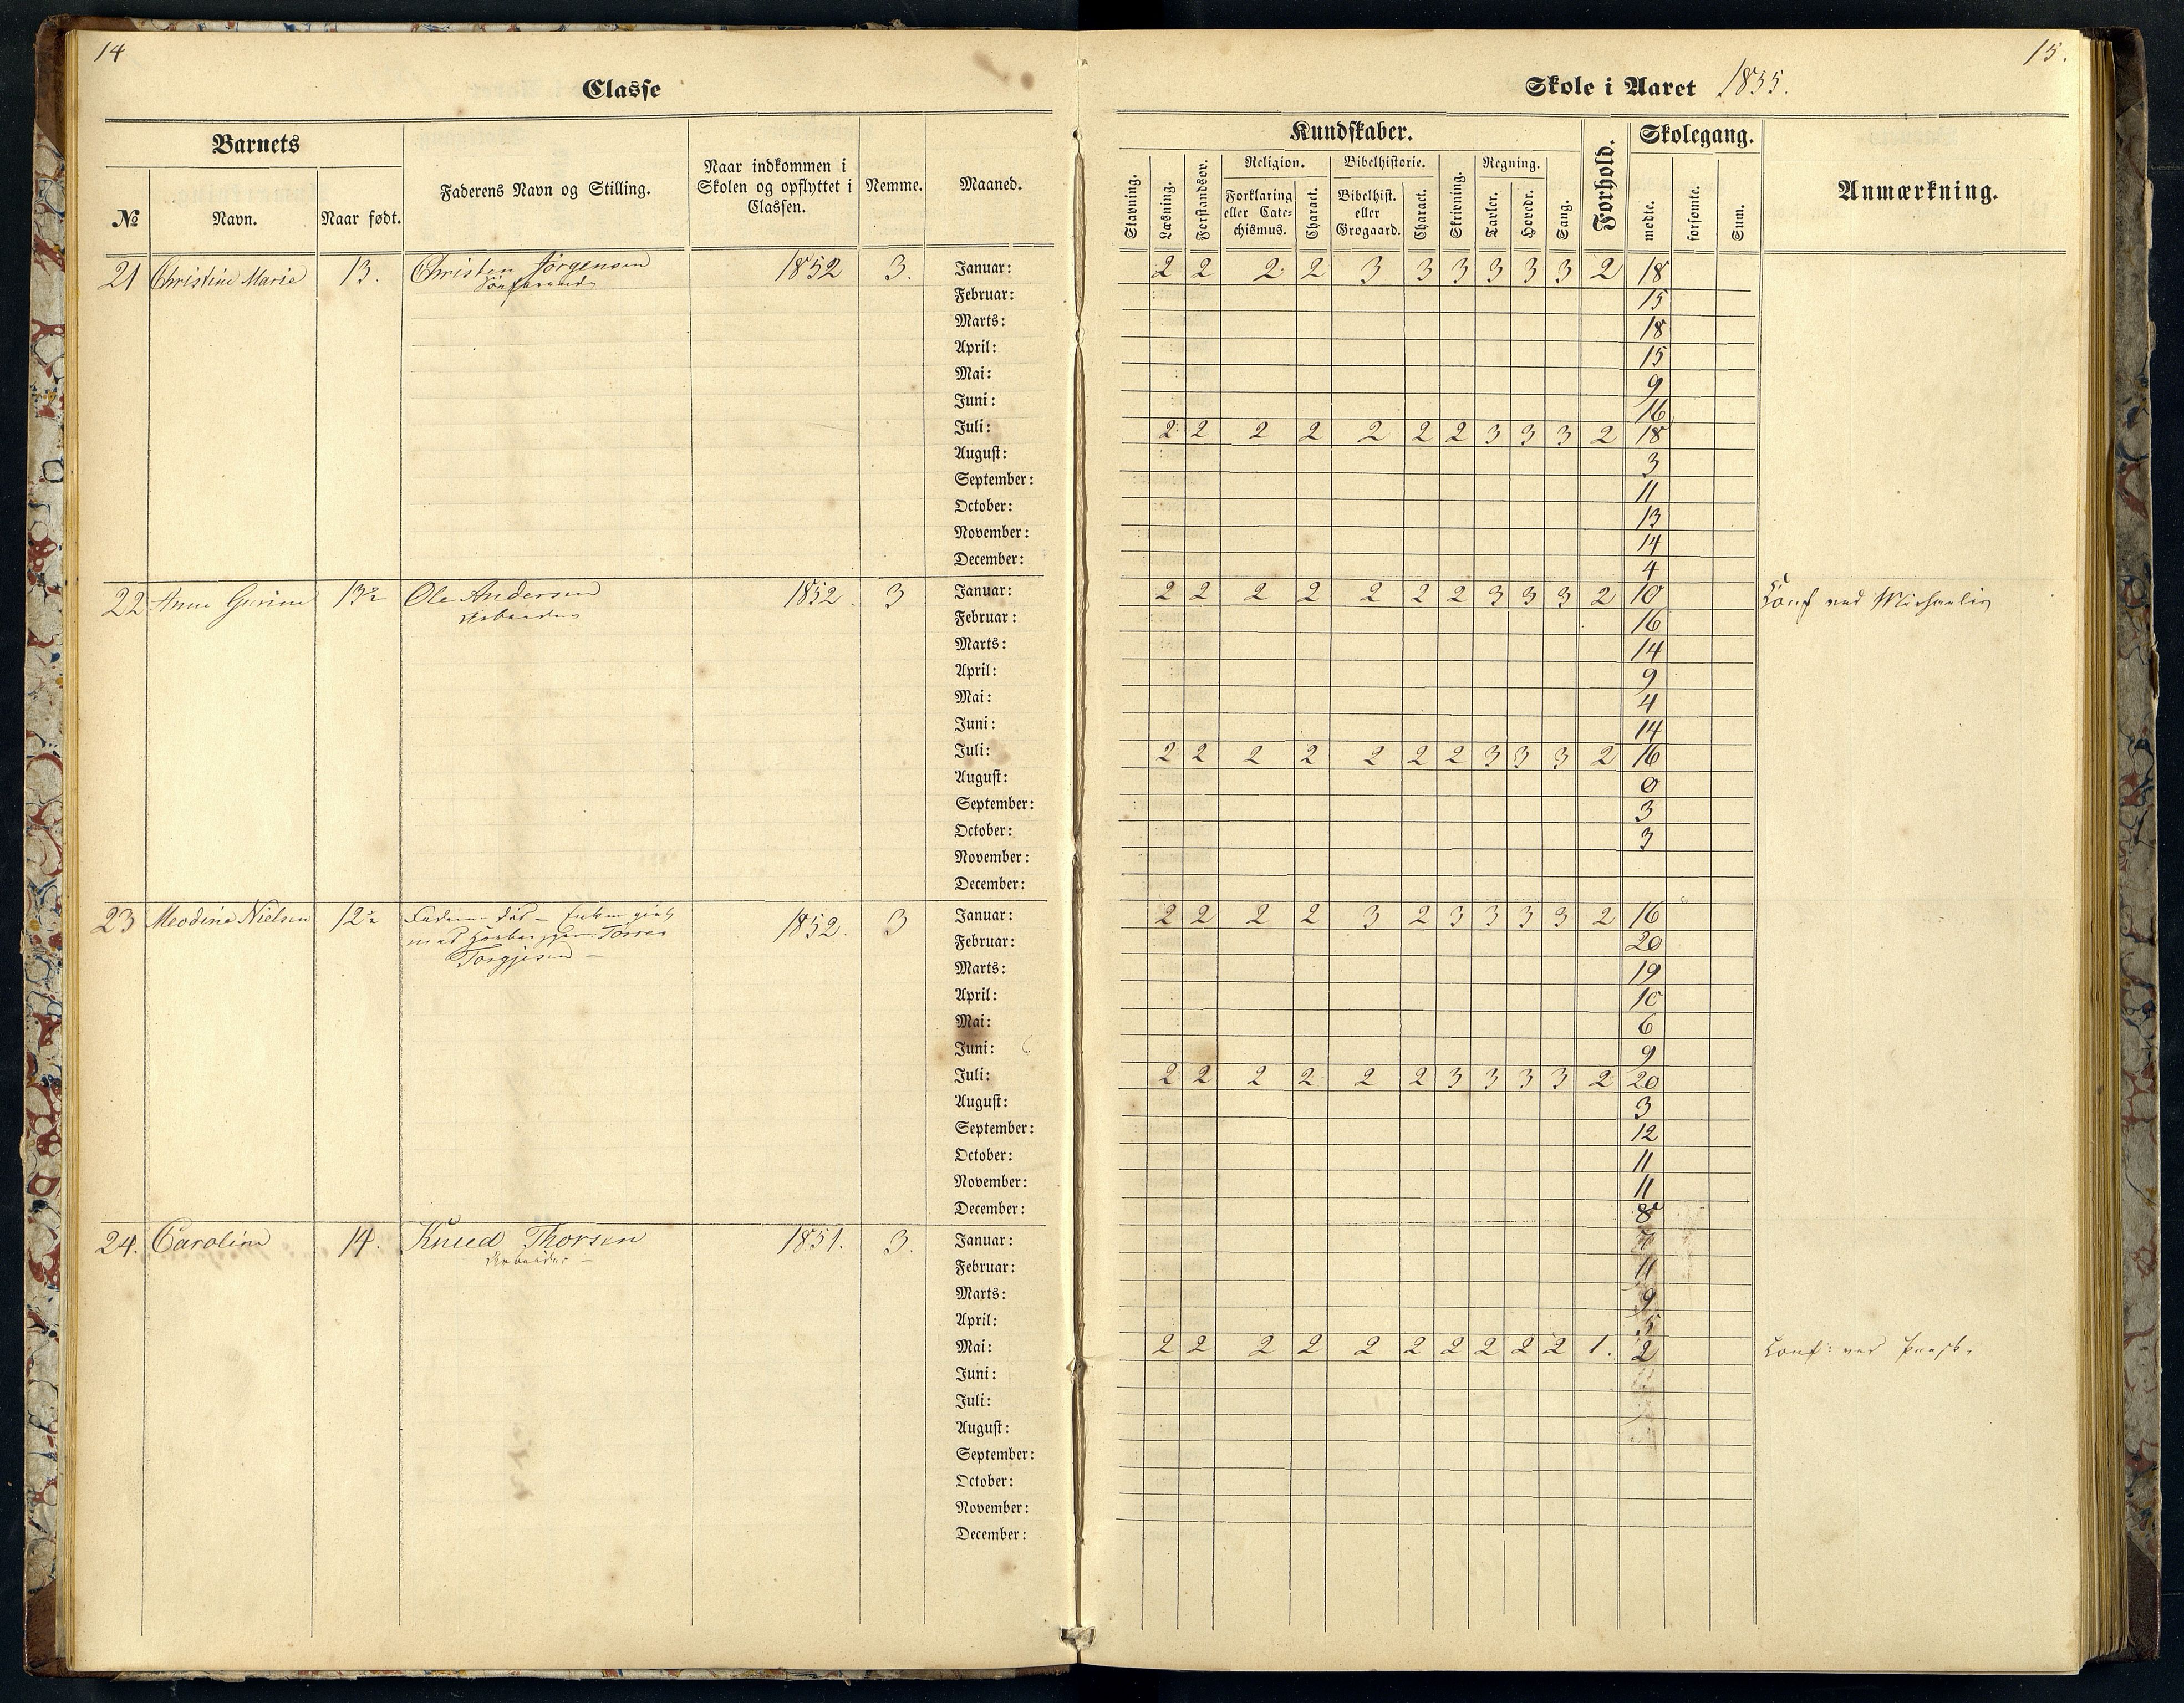 14
Classe
Barnets
№
Navn.
Naar født.
Faderens Navn og Stilling.
Naar indkommen i
Skolen og opflyttet i
Classen.
Nemme.
Maaned.
21 Christine Marie 13. Christen Jörgensen 1852 3.
Januar:
Februar:
Marts:
April:
Mai:
Juni:
Juli:
August:
September:
October:
November:
December:
22 Anne Gurine 13½ Ole Andersen 1852. 3
Arbeider
Januar:
Februar:
Marts:
April:
Mai:
Juni:
Juli:
August:
September:
October:
November:
December:
23 Meodine Nielsen 12½ Faderen død – Enken givt 1852. 3
med Tørres
Torgjesen –
Januar:
Februar:
Marts:
April:
Mai:
Juni:
Juli:
August:
September:
October:
November:
December:
24. Caroline 14. Knud Thorsen 1851. 3.
Arbeider –
Januar:
Februar:
Marts:
April:
Mai:
Juni:
Juli:
August:
September:
October:
November:
December:
15.
Skole i Aaret 1855.
Kundskaber.
Forhold.
Skolegang.
Anmærkning.
Stavning.
Læsning.
Forstandsøv.
Religion.
Forklaring
eller Cate-
chismus.
Charact.
Bibelhistorie.
Bibelhist.
eller
Grøgaard.
Charact.
Skrivning.
Regning.
Tavler.
Hovedr.
Sang.
mødte.
forsømte.
Sum.
2 2 2 2 3 3 3 3 3 3 2 18
15
18
15
9
16
2 2 2 2 2 2 2 3 3 3 2 18
3
11
13
14
4
2 2 2 2 2 2 2 3 3 3 2 10 Conf ved Michaelis
16
14
9
4
14
2 2 2 2 2 2 2 3 3 3 2 16
0
3
3
2 2 2 2 3 2 3 3 3 3 2 16
20
19
10
6
9
2 2 2 2 2 2 3 3 3 3 2 20
3
12
11
11
8
11
9
5
2 2 2 2 2 2 2 2 2 2 1. 2 Conf: ved Paask.